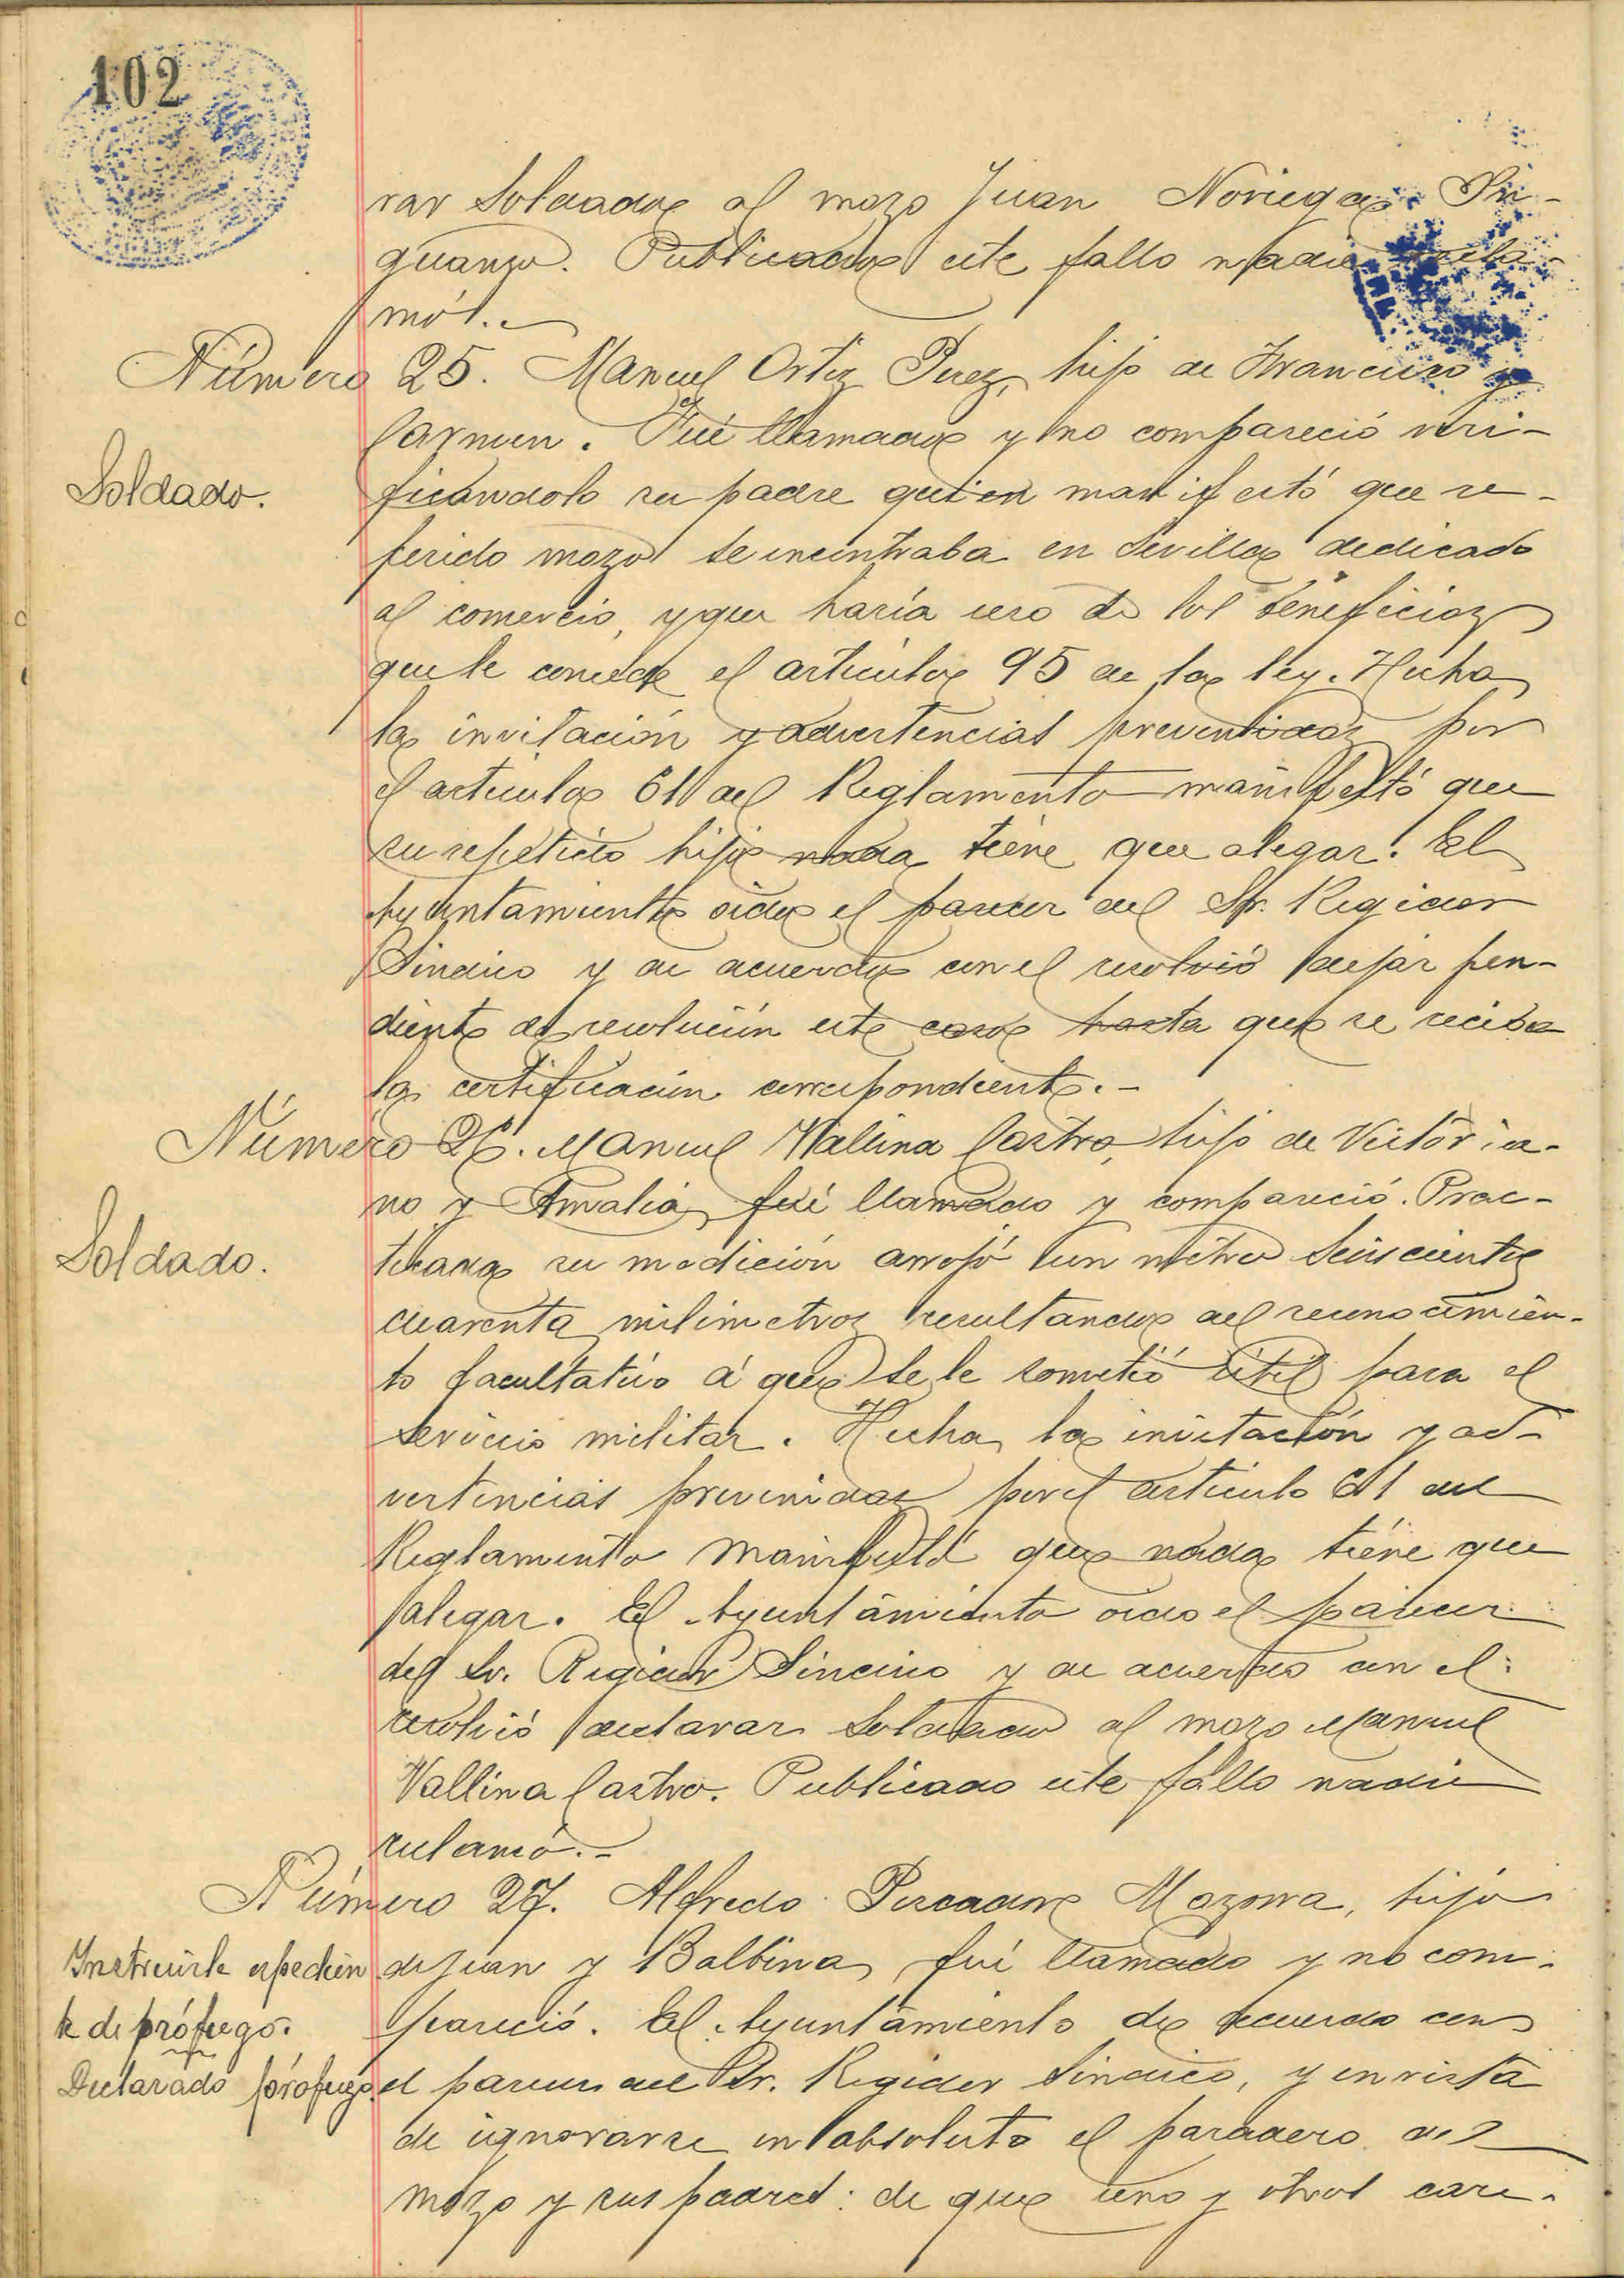 102
rar Soldado al mozo Juan Noriega In-
guanzo. Publicado este fallo nadie recla-
mó.-
Número 25. Manuel Ortiz Perez, hijo de Francisco y
Carmen. Fué llamado y no compareció veri-
Soldado.
ficándolo su padre quien manifestó que re-
ferido mozo se encontraba en Sevilla dedicado
al comercio, y que haría uso de los beneficios
que le concede el artículo 95 de la ley. Hecha
la invitación y advertencias prevenidas por
el artículo 61 del Reglamento manifestó que
su repetido hijo nada tiene que alegar. El
Ayuntamiento oido el parecer del Sr. Regidor
Síndico y de acuerdo con el resolvió dejar pen-
diente de resolución este caso hasta que se reciba
la certificación correspondiente.-
Número 26. Manuel Vallina Castro, hijo de Victoria-
no y Amalia, fué llamado y compareció. Prac-
Soldado.
ticada su medición arrojó un metro seiscientos
cuarenta milímetros resultando del reconocimien-
to facultativo á que se le sometió útil para el
servicio militar. Hecha la invitación y ad-
vertencias prevenidas por el artículo 61 del
Reglamento manifestó que nada tiene que
alegar. El Ayuntamiento oido el parecer
del Sr. Regidor Síndico y de acuerdo con el
resolvió declarar Soldado al mozo Manuel
Vallina Castro. Publicado este fallo nadie
reclamó.-
Número 27. Alfredo Pescador Mazorra, hijo
de Juan y Balbina, fué llamado y no com-
Instruirle expedien
te de prófugo.
Declarado prófugo.
pareció. El Ayuntamiento de acuerdo con
el parecer del Sr. Regidor Síndico, y en vista
de ignorarse en absoluto el paradero del
mozo y sus padres: de que uno y otros care-